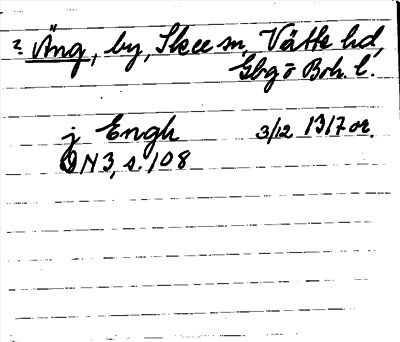 ? Äng, by, Skee sn, Vätte hd,
Gbg o Boh. l.
j Engh 3/12 1317 or.
DN 3, s. 108